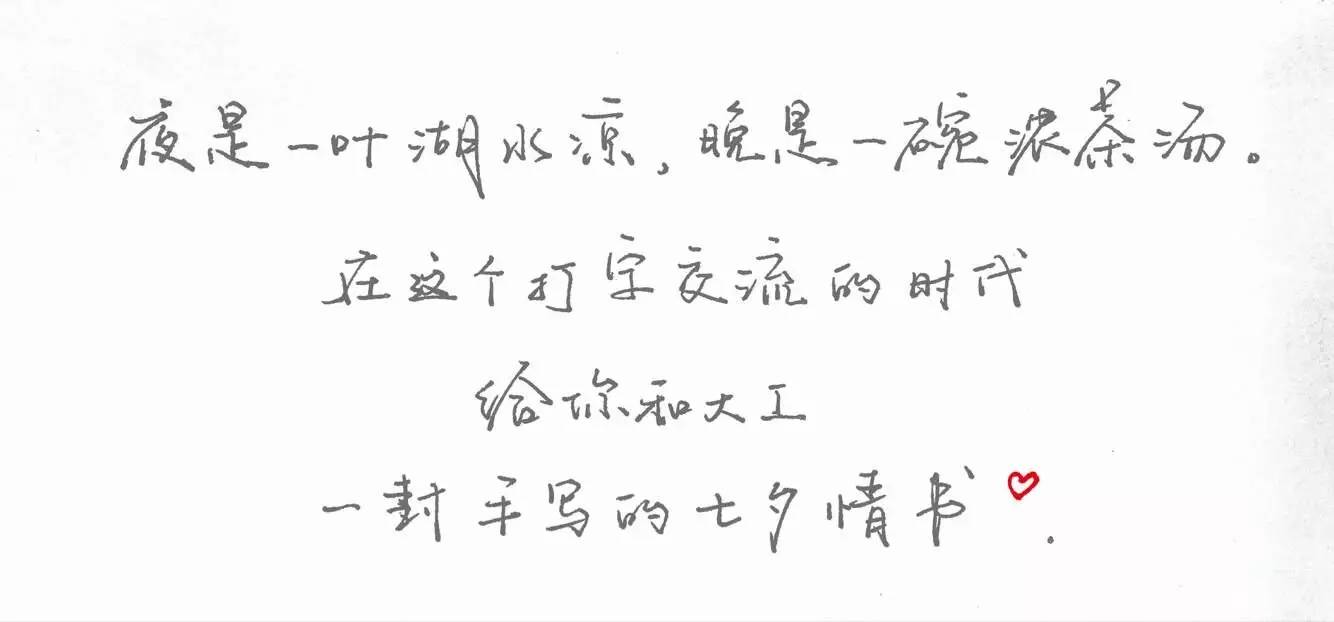 夜是一叶湖水凉，晚是一碗浓茶汤。
在这个打字交流的时代
给你和大工
一封手写的七夕情书♡.